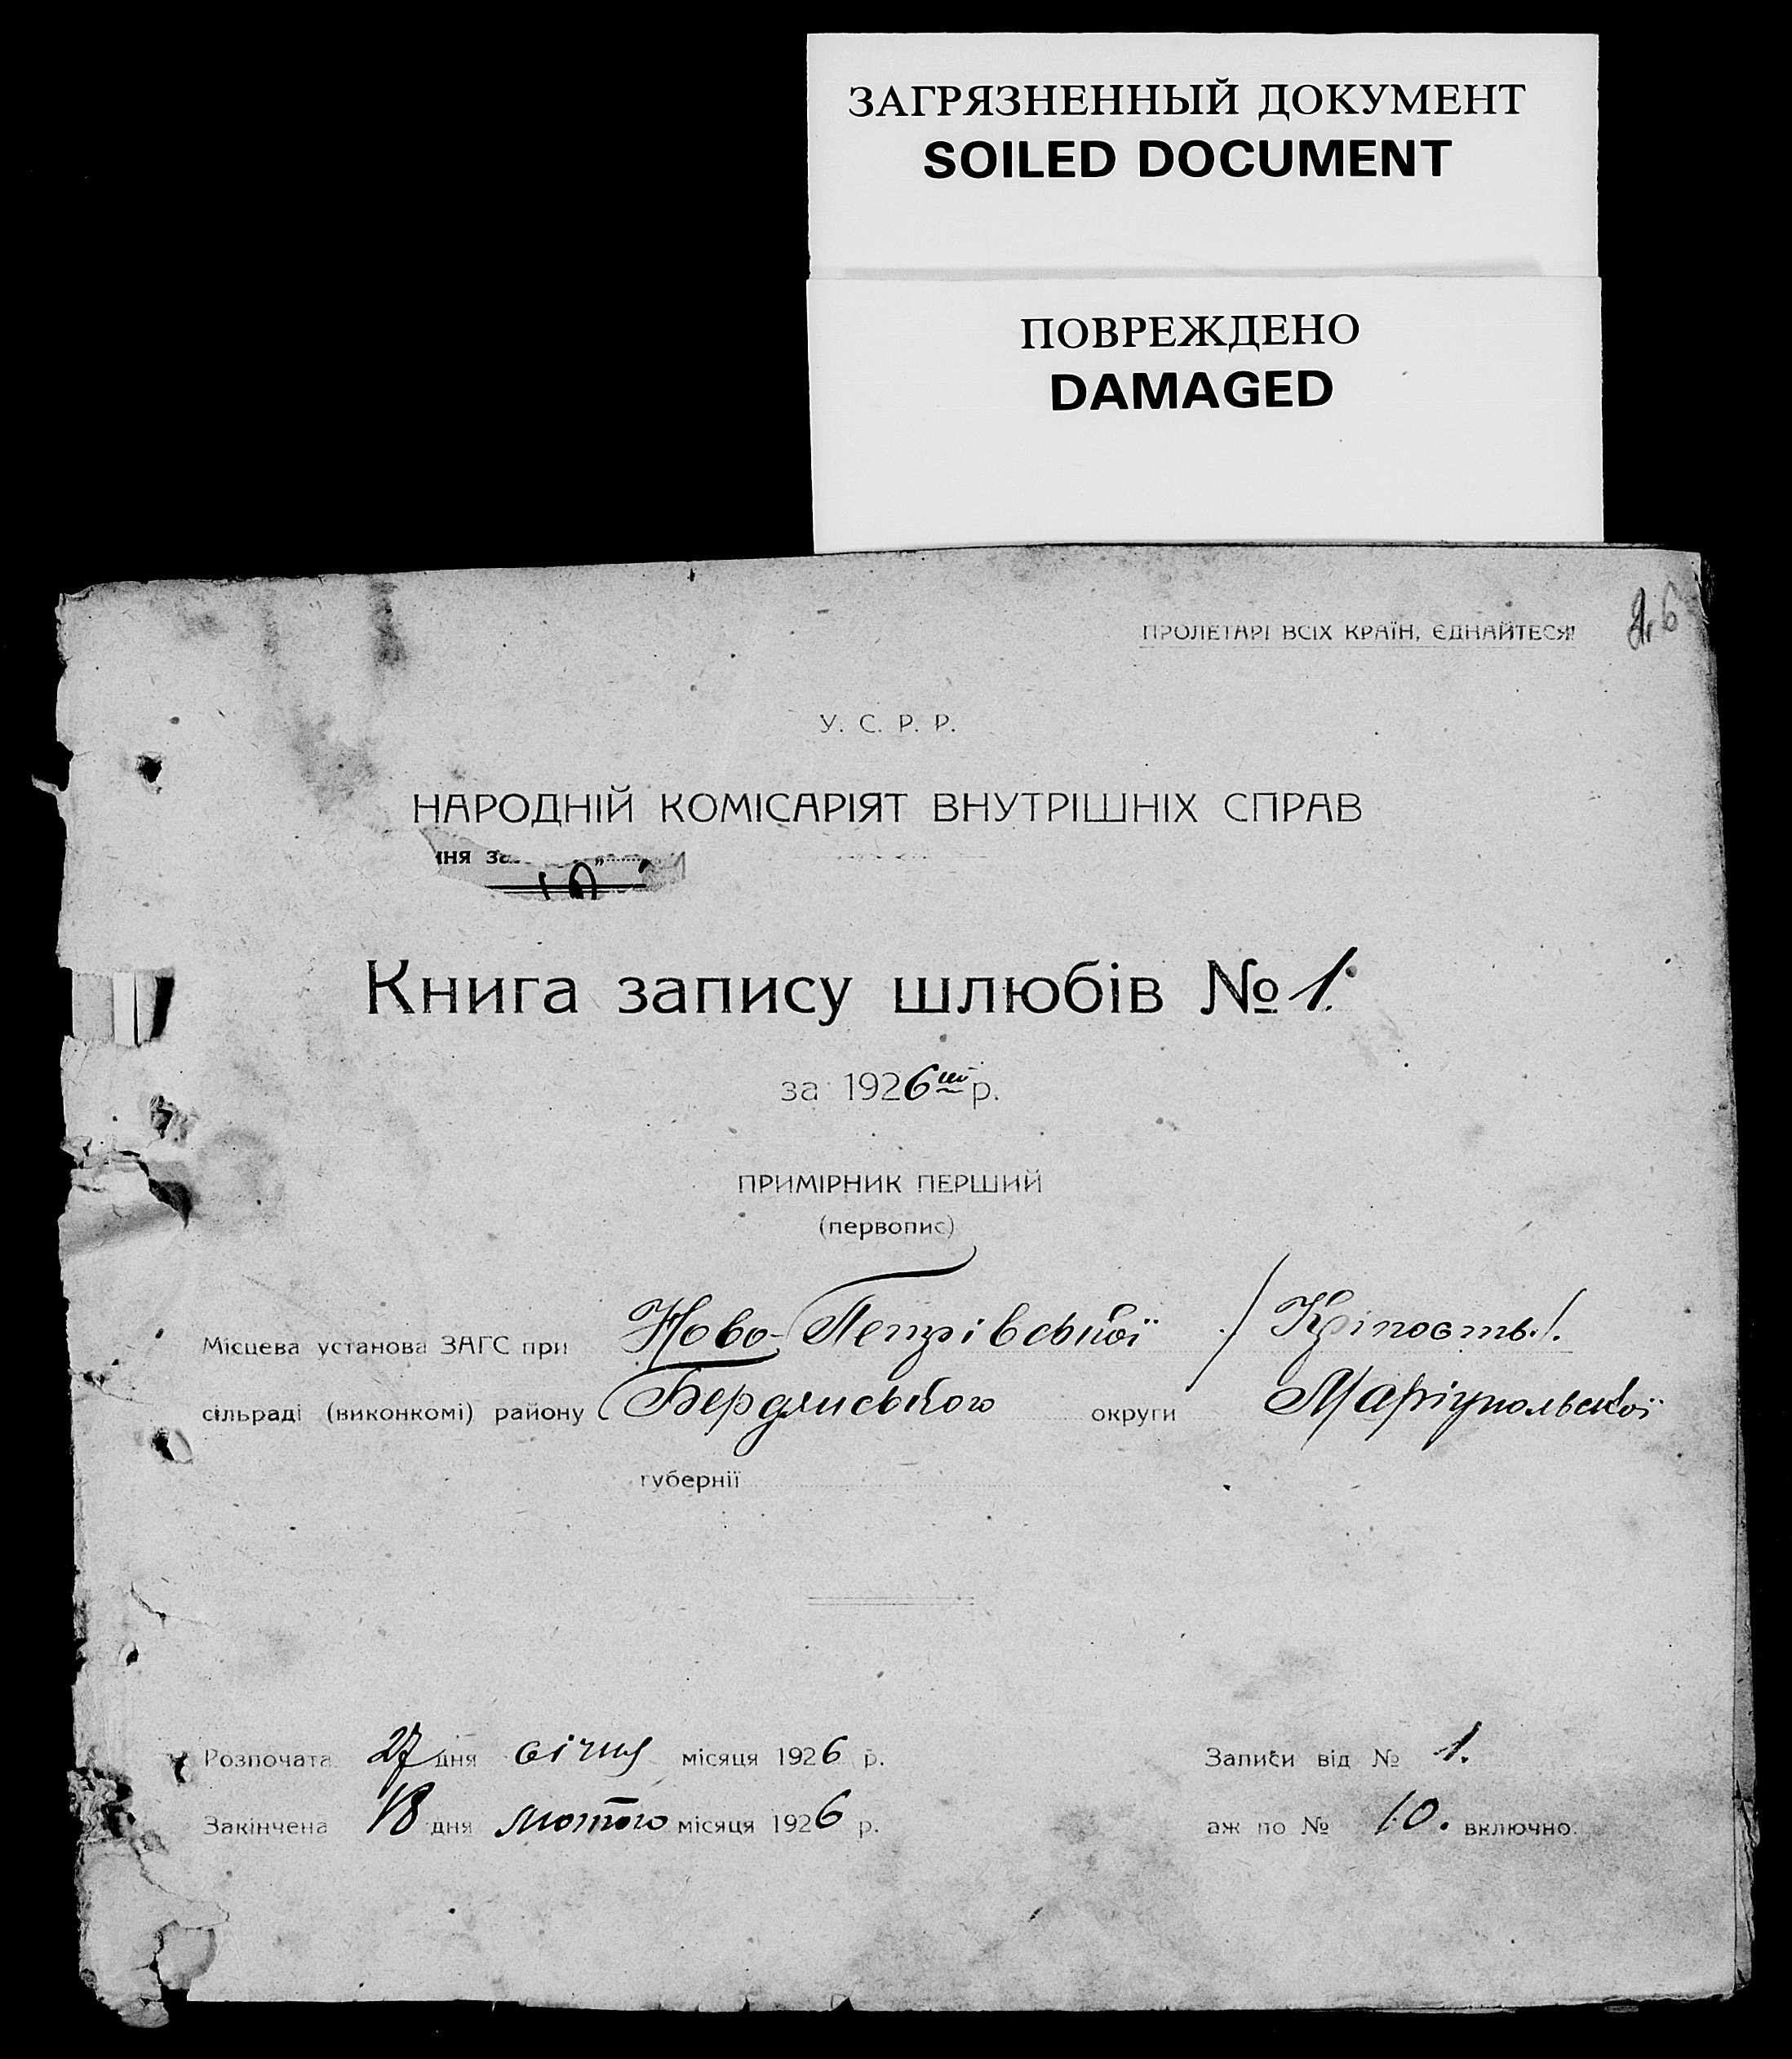 ЗАГРЯЗНЕННЫЙ ДОКУМЕНТ
SOILED DOCUMENT
ПОВРЕЖДЕНО
DAMAGED
ПРОЛЕТАРІ ВСІХ КРАЇН, ЄДНАЙТЕСЯ!
У. С. Р. Р.
НАРОДНІЙ КОМІСАРІЯТ ВНУТРІШНІХ СПРАВ
Книга запису шлюбів № 1.
за 1926ий р.
ПРИМІРНИК ПЕРШИЙ
(первопис)
Місцева установа ЗАГС при Ново-Петрівської / Кріпость /.
сільраді (виконкомі) району Бердянського округи Маріупольської
губернії
Розпочата 27 дня січня місяця 1926 р. Записи від № 1.
Закінчена 18 дня лютого місяця 1926 р. аж по № 10. включно.